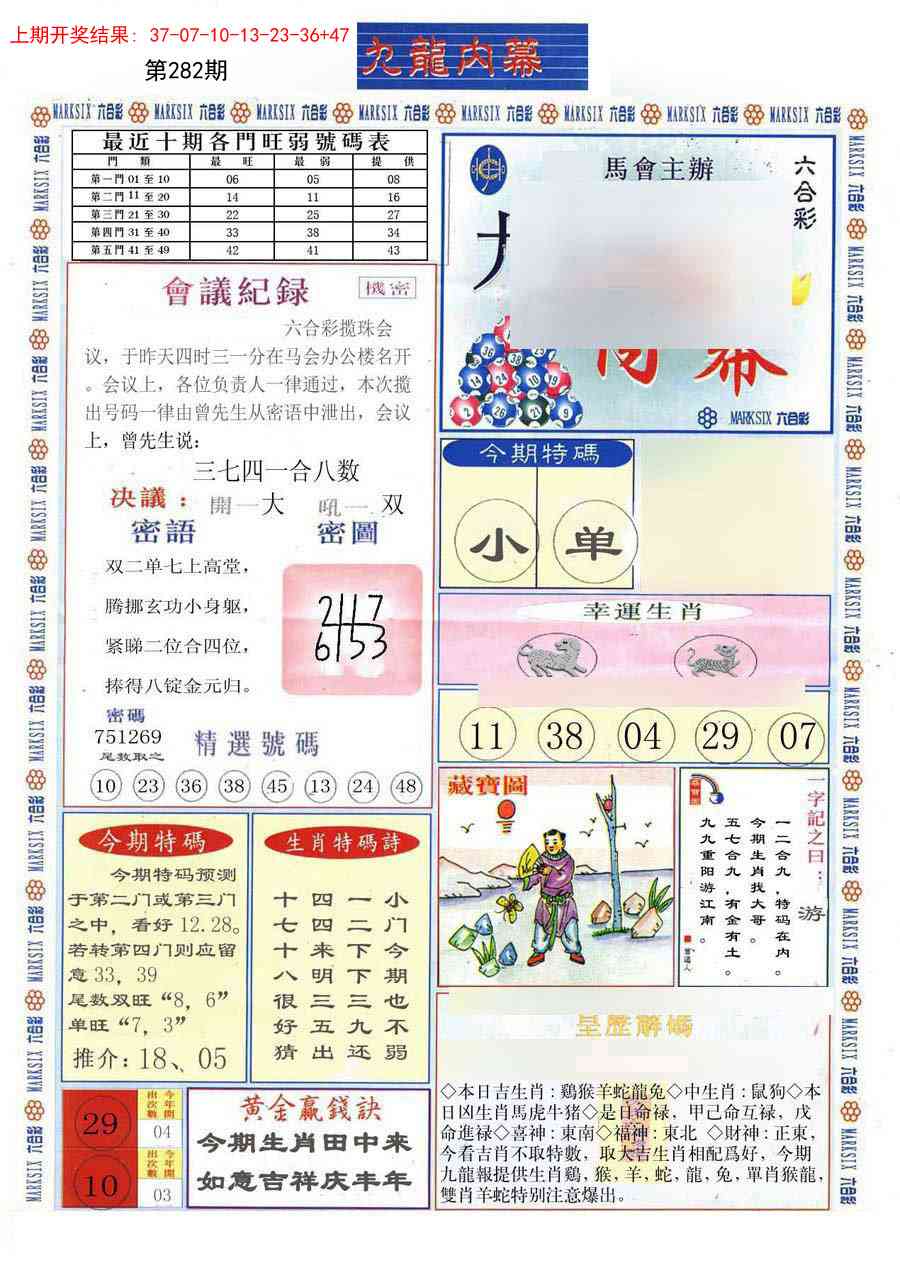 上期开奖结果: 37-07-10-13-23-36+47
第282期
九龍内幕
MARKSIX 六合彩
最近十期各門旺弱號碼表
門類 最旺 最弱 提供
第一門 01 至 10 06 05 08
第二門 11 至 20 14 11 16
第三門 21 至 30 22 25 27
第四門 31 至 40 33 38 34
第五門 41 至 49 42 41 43
會議紀録
機密
六合彩揽珠会
议，于昨天四时三一分在马会办公楼名开
。会议上，各位负责人一律通过，本次揽
出号码一律由曾先生从密语中泄出，会议
上，曾先生说：
三七四一合八数
决議：開一大 吼一双
密語 密圖
双二单七上高堂，
腾挪玄功小身躯，
紧睇二位合四位，
捧得八锭金元归。
2117
6153
密碼
751269
尾数取之
精選號碼
10 23 36 38 45 13 24 48
馬會主辦
六合彩
幕
MARKSIX 六合彩
今期特碼
小 单
幸運生肖
11 38 04 29 07
藏寶圖
一字記之曰：游
一二合九，特码在内。
今期生肖找大哥。
五七合九，有金有土。
九九重阳游江南。
曾道人
今期特碼
今期特码预测
于第二门或第三门
之中，看好 12.28。
若转第四门则应留
意 33，39
尾数双旺“8，6”
单旺“7，3”
推介：18、05
生肖特碼詩
小门今期也不弱
一二下下三九还
四四来明三五出
十七十八很好猜
29 出次數 今年開 04
10 出次數 今年開 03
黄金贏錢訣
今期生肖田中来
如意吉祥庆丰年
呈歷解碼
◇本日吉生肖：鷄猴羊蛇龍兔◇中生肖：鼠狗◇本
日凶生肖馬虎牛猪◇是日命禄，甲己命互禄，戊
命進禄◇喜神：東南◇福神：東北 ◇財神：正東，
今看吉肖不取特數，取大吉生肖相配爲好，今期
九龍報提供生肖鷄，猴，羊，蛇，龍，兔，單肖猴龍，
雙肖羊蛇特别注意爆出。